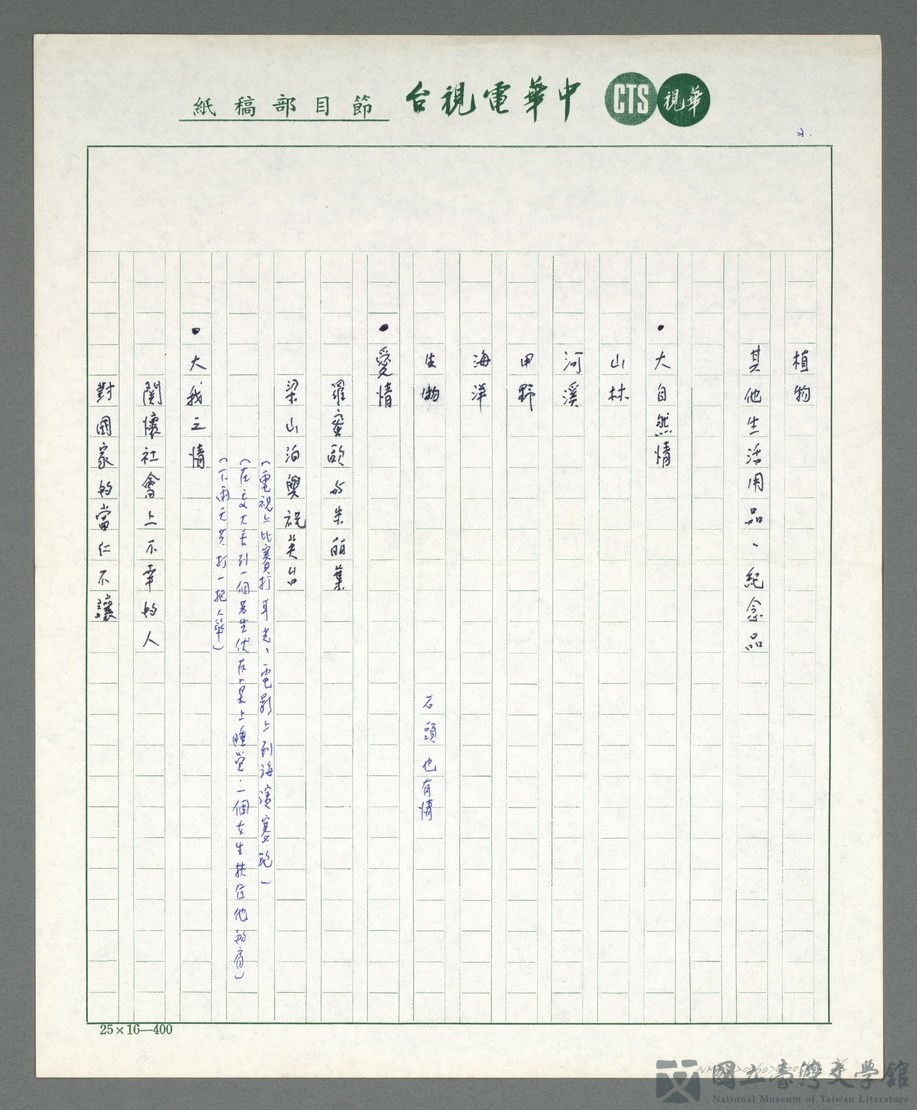 CTS 華視 中華電視台 節目部稿紙
2.
植物
其他生活用品、紀念品
•大自然情
山林
河溪
田野
海洋
生物
石頭也有情
•愛情
羅蜜歐与朱麗葉
梁山泊與祝英台
(電視上比賽打耳光、電影上到海濱賽跑)
(在文大看到一個男生伏在桌上睡覺,一個女生扶在他的肩)
(下雨天共打一把傘)
•大我之情
關懷社會上不幸的人
對國家的當仁不讓
25×16—400
國立臺灣文學館
National Museum of Taiwan Literature